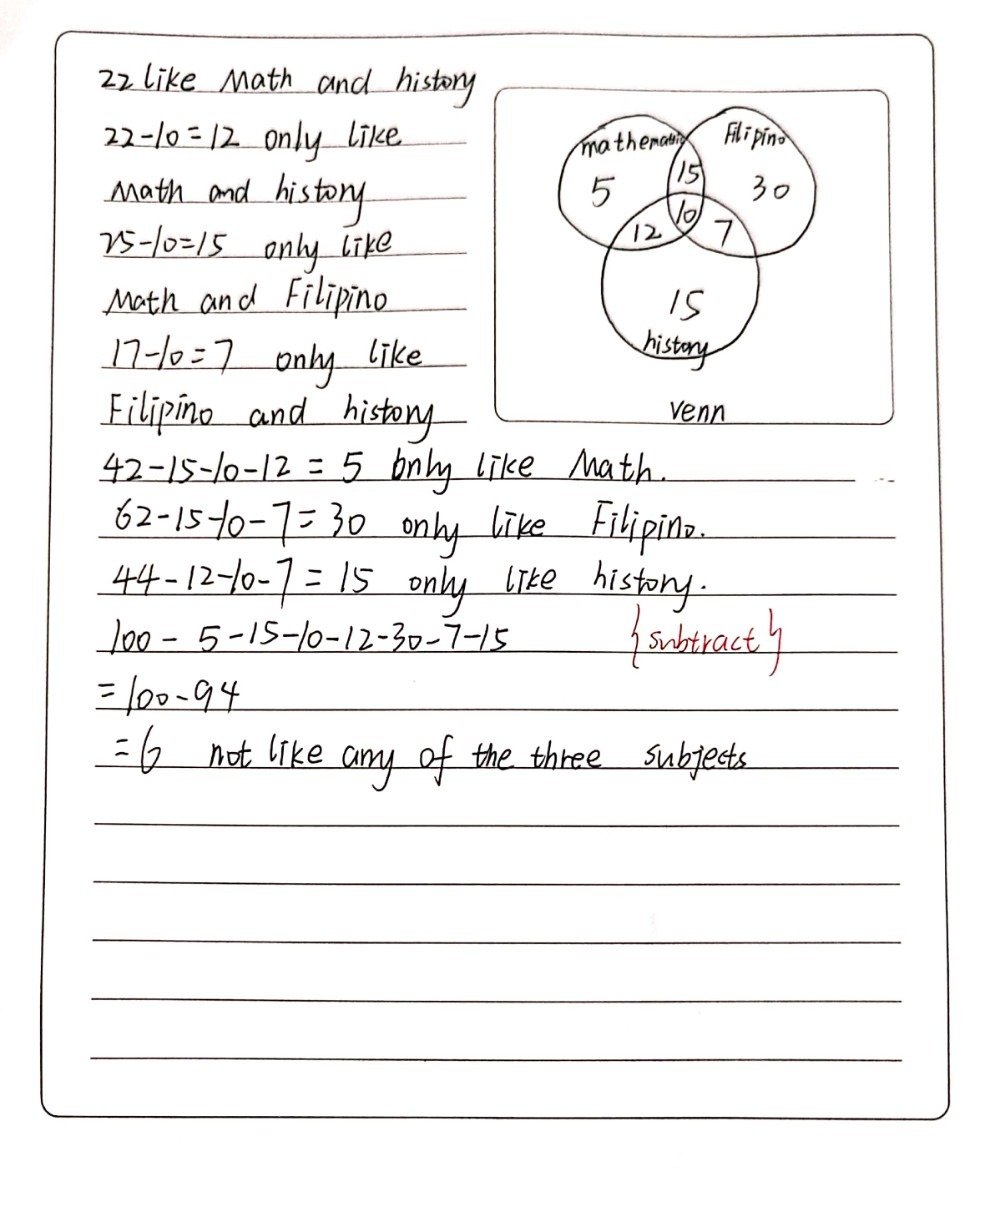 22 like Math and history
22-10=12 only like
Math and history
25-10=15 only like
Math and Filipino
17-10=7 only like
Filipino and history
42-15-10-12=5 only like Math.
62-15-10-7=30 only like Filipino.
44-12-10-7=15 only like history.
100-5-15-10-12-30-7-15
{subtract}
=100-94
=6 not like any of the three subjects
mathematic
Filipino
5
15
30
10
12
7
15
history
Venn